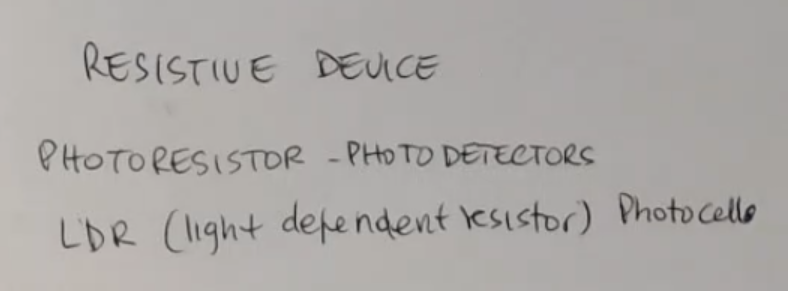 RESISTIVE DEVICE
PHOTORESISTOR - PHOTODETECTORS
LDR (light dependent resistor) Photocells